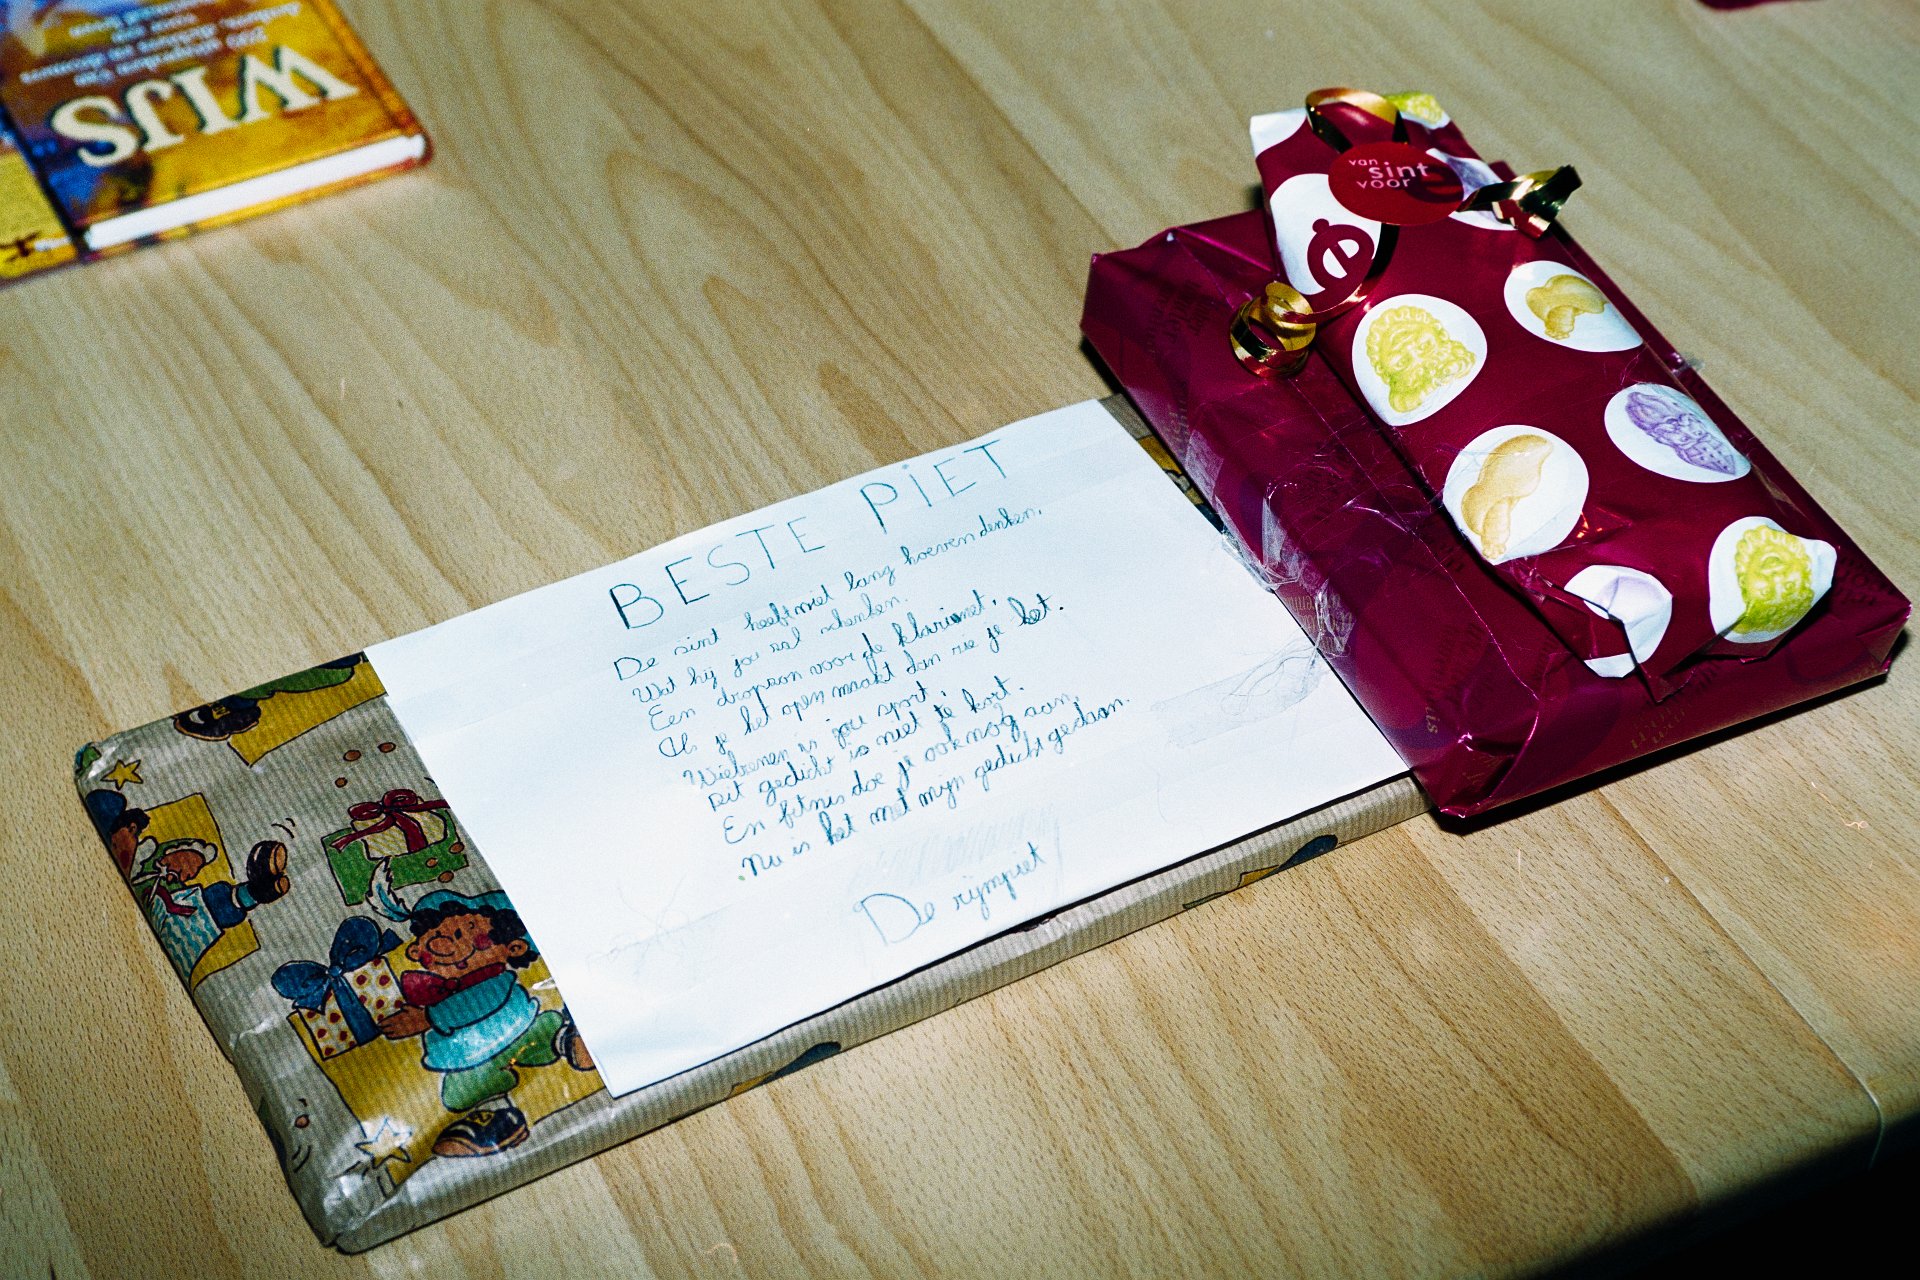 WIJS
van
sint
voor
e
BESTE PIET
De sint heeft niet lang hoeven denken,
Wat hij jou zal schenken.
Een dropzon voor de klarinet,
Als je het open maakt dan zie je het.
Wielrenen is jou sport.
Dit gedicht is niet te kort.
En fitnis doe je ook nog aan,
Nu is het met mijn gedicht gedaan.
De rijmpiet